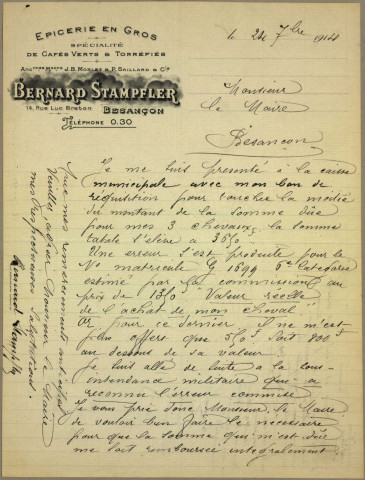 EPICERIE EN GROS
SPÉCIALITÉ
DE CAFÉS VERTS & TORRÉFIÉS
J.B. & P. GAILLARD & Cie
BERNARD STAMPFLER
14, Rue Luc Breton
BESANÇON
TÉLÉPHONE 0.30
le 24 7bre 1914
Monsieur
le Maire
Besançon
Je me suis présenté à la caisse
municipale avec mon bon de
réquisition pour toucher la moitié
du montant de la somme due
pour mes 3 chevaux, la somme
totale s'élève à
Une erreur s'est produite pour le
No matricule G 1699 6e Catégorie
estimé par la commission au
prix de Valeur réelle
de l'achat de mon cheval
Or pour ce dernier il ne m'est
offert que soit 800
au dessous de sa valeur.
Je suis allé de suite à la sous-
intendance militaire qui a
reconnu l'erreur commise
Je vous prie donc Monsieur le Maire
de vouloir bien faire le nécessaire
pour que la somme qui m'est due
me soit remboursée intégralement.
Avec mes remerciements anticipés
Veuillez agréer Monsieur le Maire
mes respectueuses salutations.
Bernard Stampfler